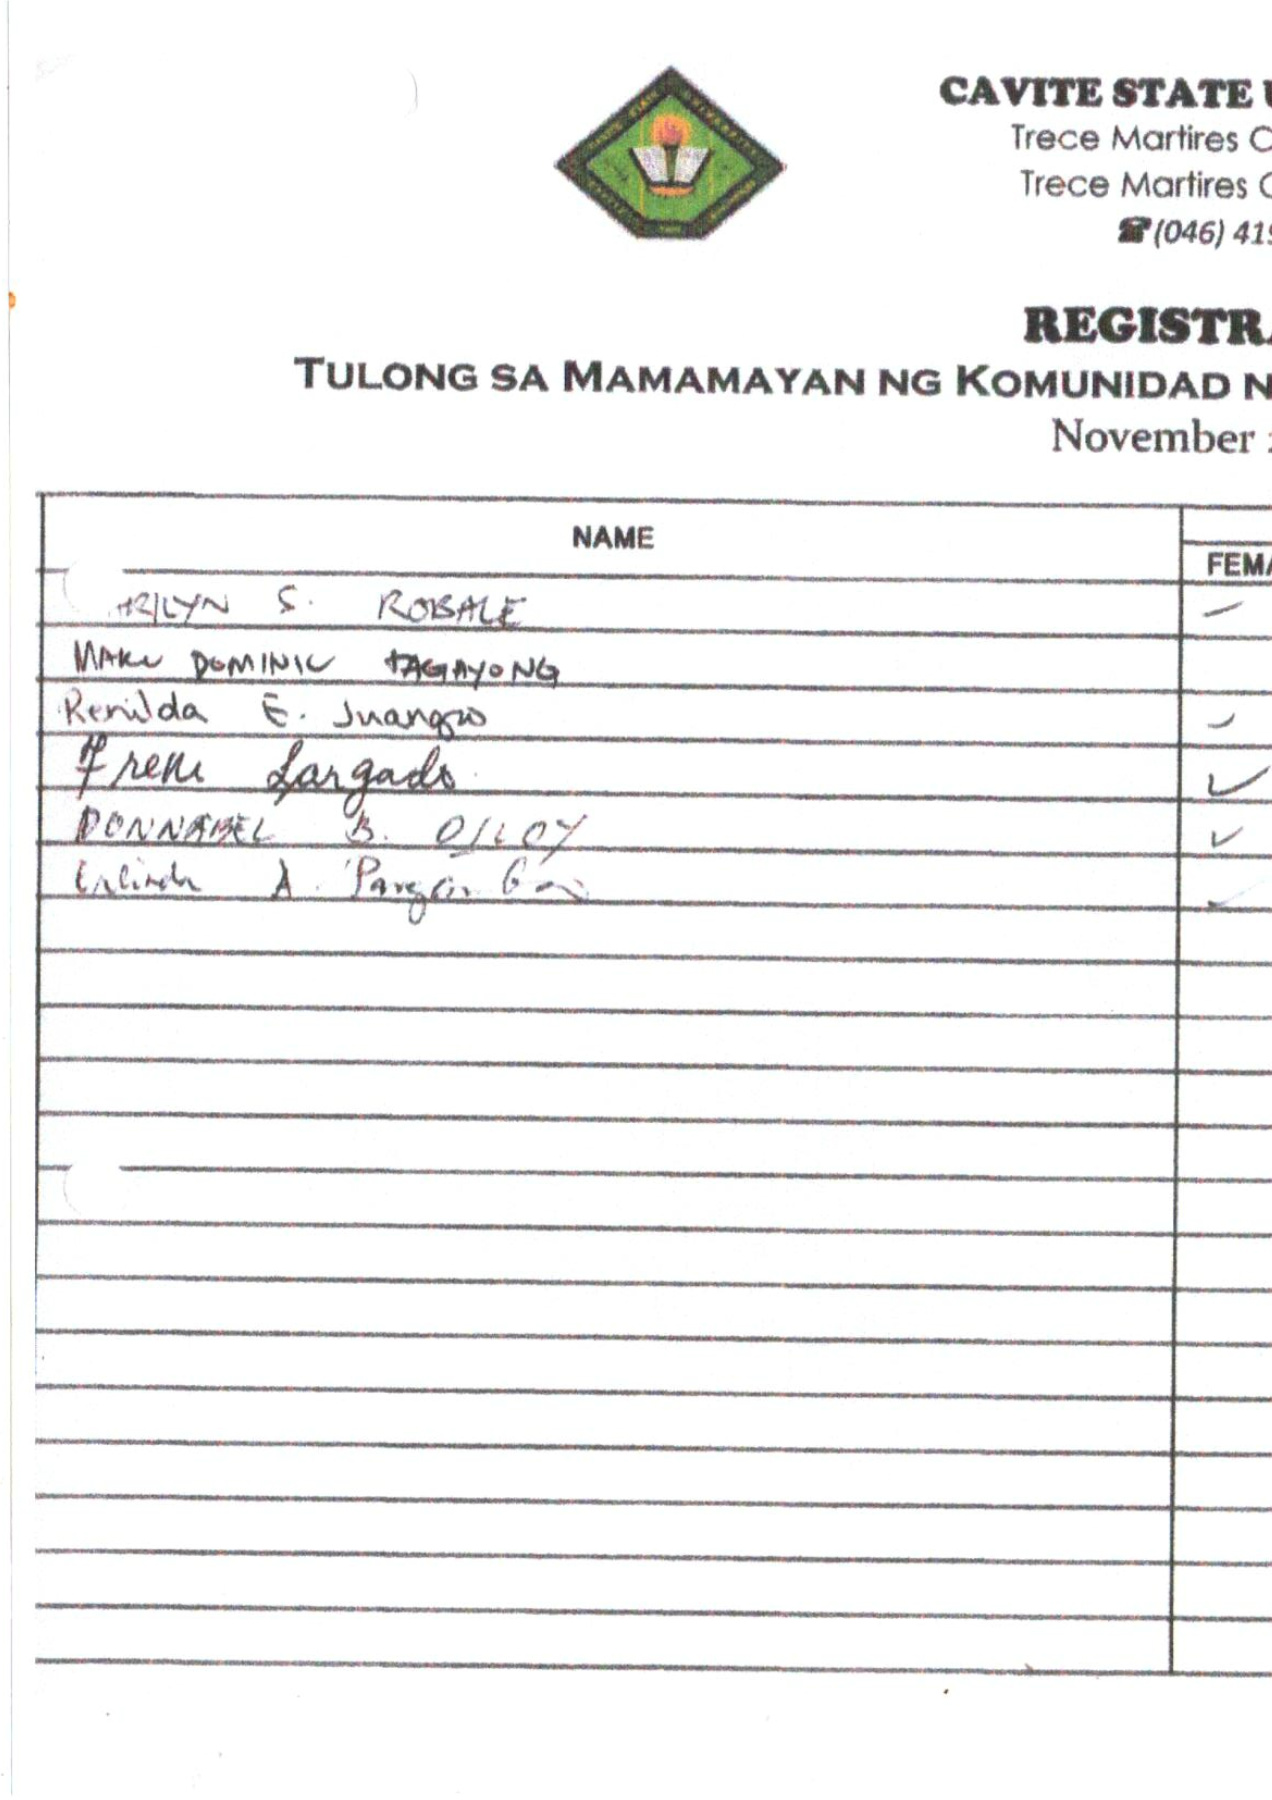 CAVITE STATE
Trece Martires C
Trece Martires
(046) 419
REGISTRA
TULONG SA MAMAMAYAN NG KOMUNIDAD N
November
NAME
FEMA
ARILYN S. ROBALE
DOMINIC TAGAYONG
Renilda E. Juangco
Irene Largado
DONNABEL B. OLLOY
Erlinda A.